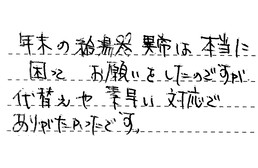 年末の給湯器異常は本当に
困って お願いをしたのですが
代替えや素早い対応で
ありがたかったです。